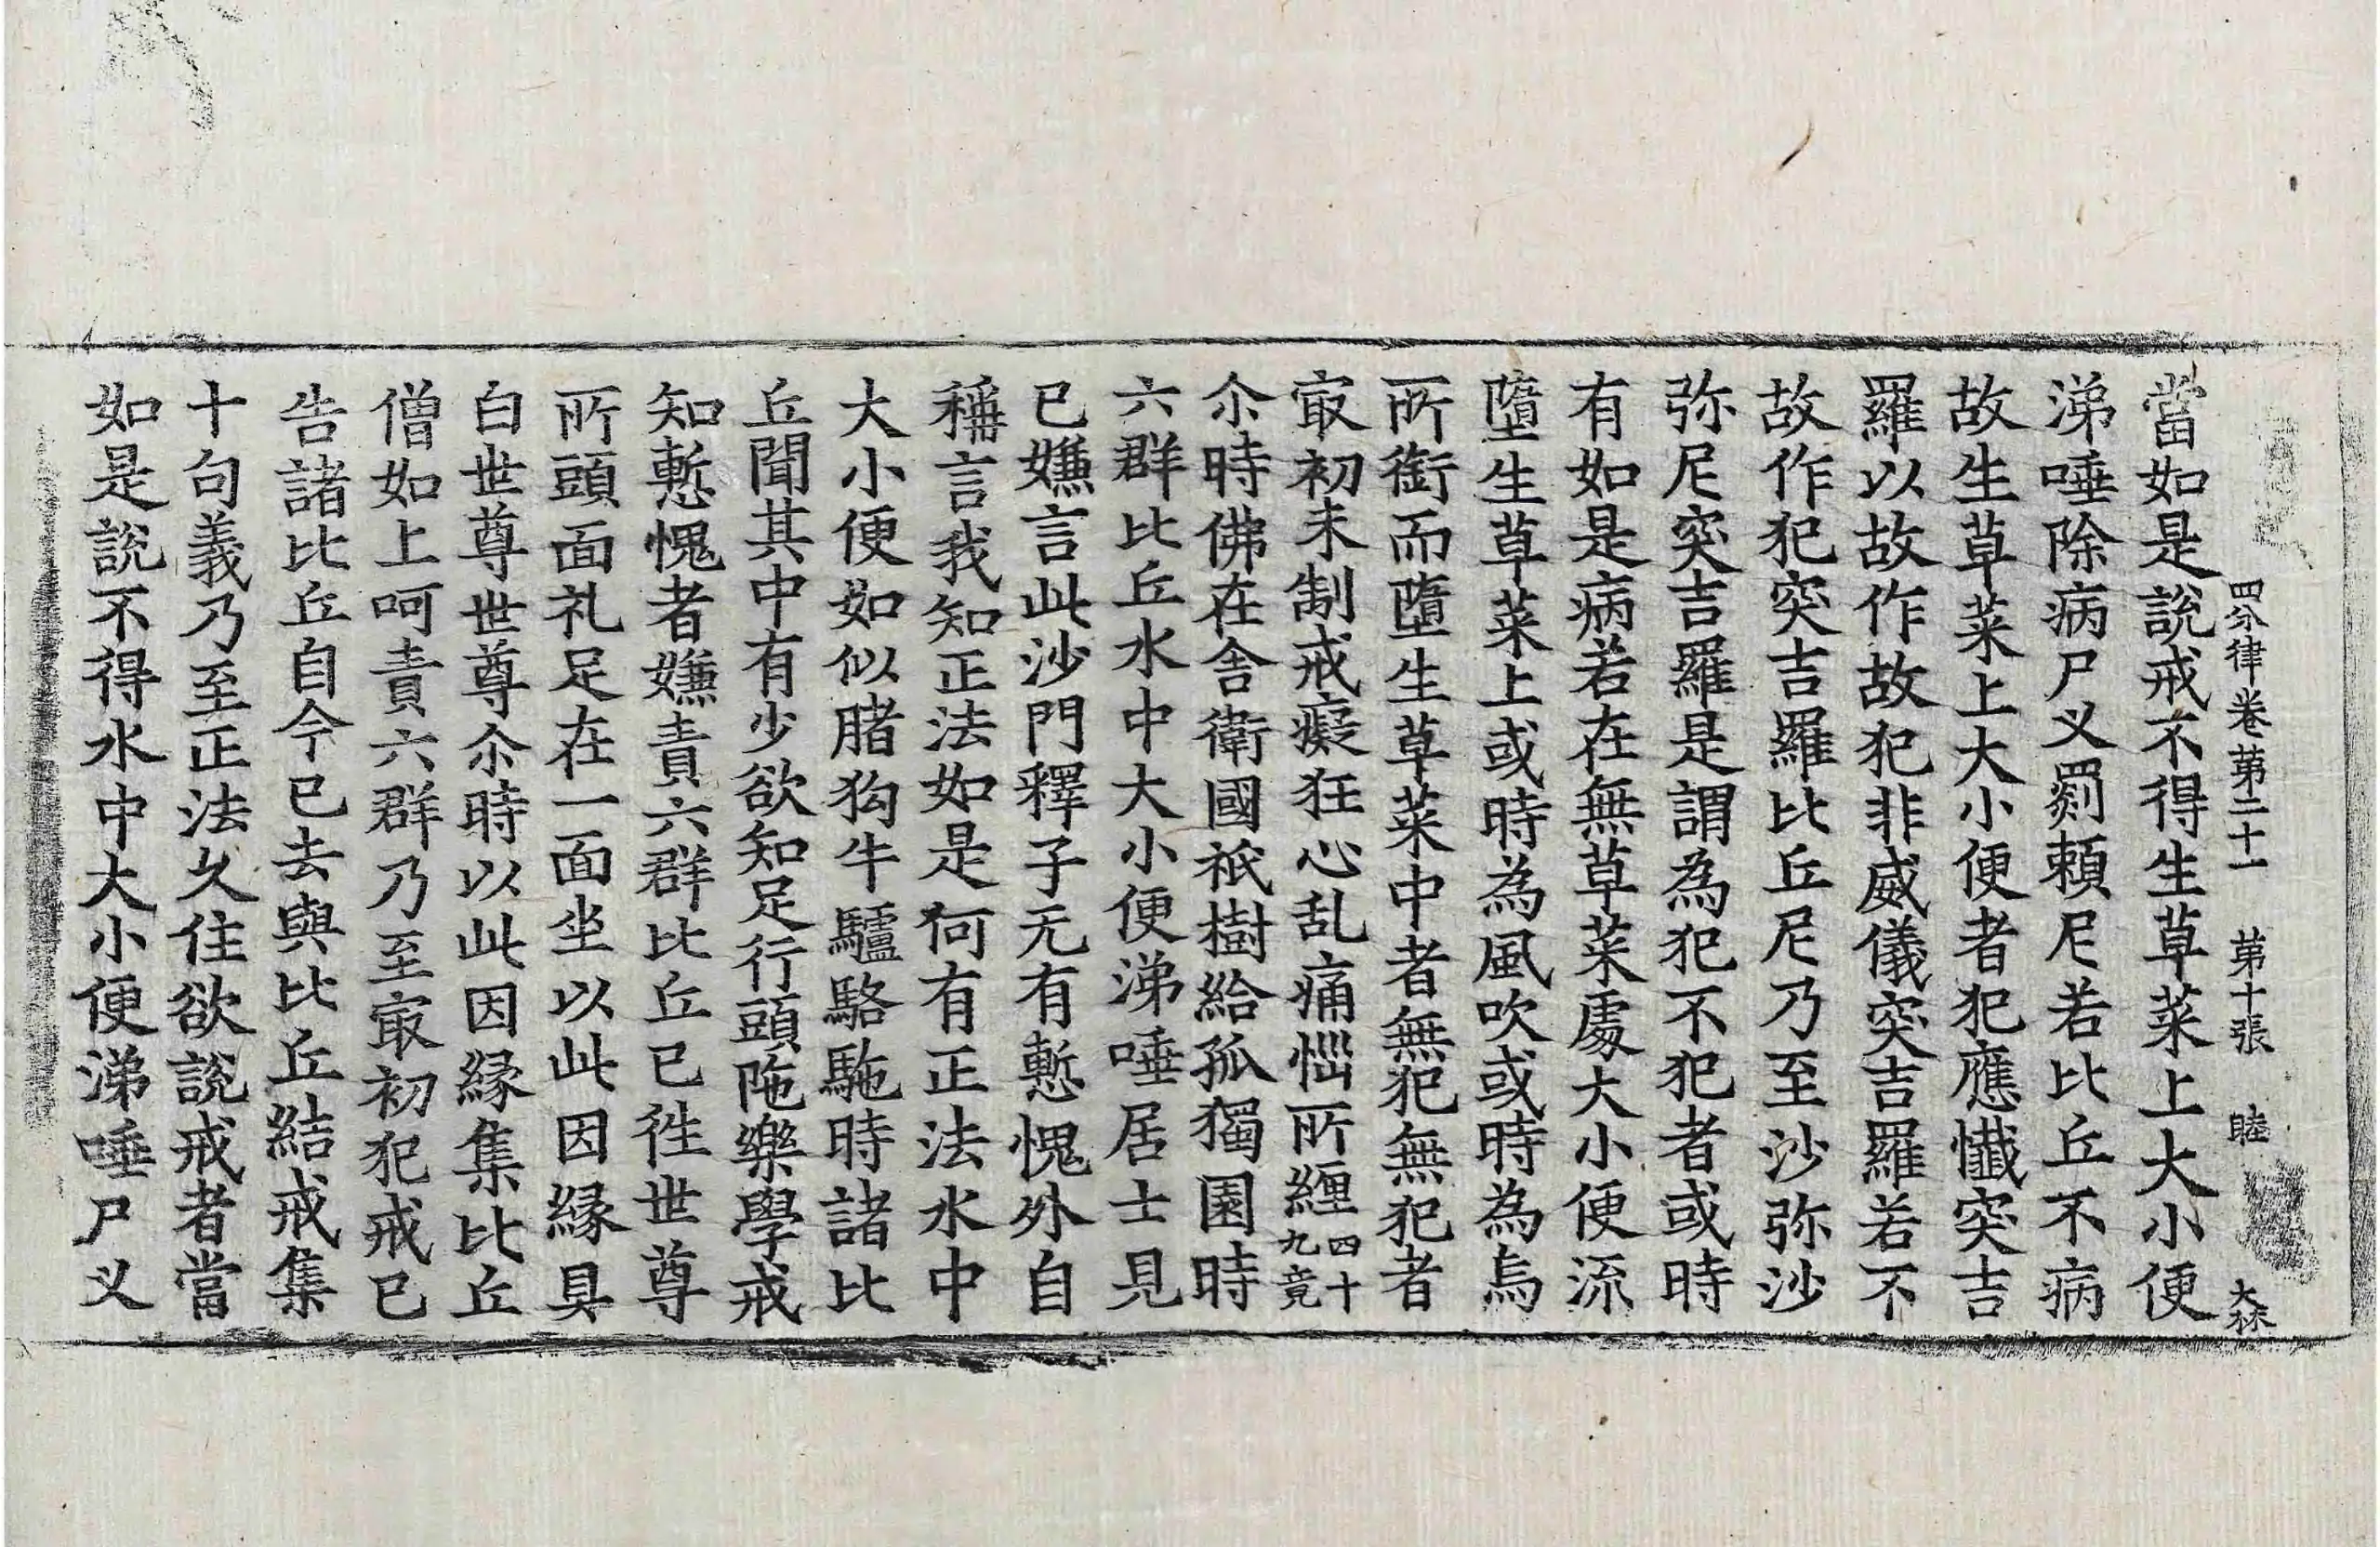 四分律卷第二十一 第十張 睦 大林
當如是說戒不得生草菜上大小便
涕唾除病尸叉罽賴尼若比丘不病
故生草菜上大小便者犯應懺突吉
羅以故作故犯非威儀突吉羅若不
故作犯突吉羅比丘尼乃至沙弥沙
弥尼突吉羅是謂為犯不犯者或時
有如是病若在無草菜處大小便流
墮生草菜上或時為風吹或時為鳥
所銜而墮生草菜中者無犯無犯者
㝡初未制戒癡狂心乱痛惱所纏四十九竟
尒時佛在舍衛國祇樹給孤獨園時
六群比丘水中大小便涕唾居士見
已嫌言此沙門釋子无有慙愧外自
稱言我知正法如是何有正法水中
大小便如似賭狗牛驢駱駞時諸比
丘聞其中有少欲知足行頭陁樂學戒
知慙愧者嫌責六群比丘已徃世尊
所頭面礼足在一面坐以此因縁具
白世尊世尊尒時以此因縁集比丘
僧如上呵責六群乃至㝡初犯戒已
告諸比丘自今已去與比丘結戒集
十句義乃至正法久住欲說戒者當
如是說不得水中大小便涕唾尸叉